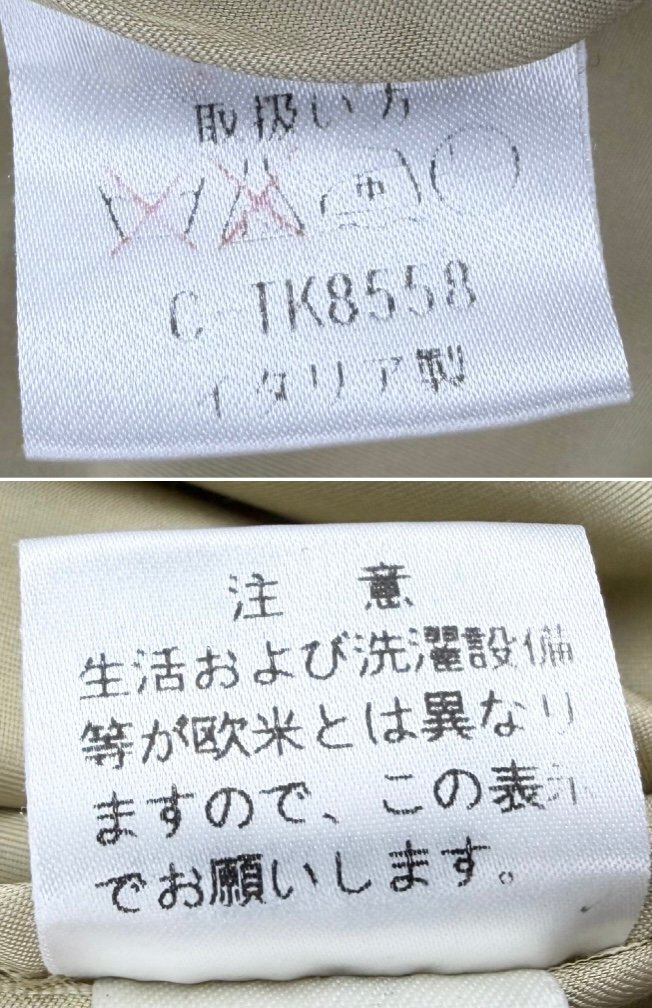 取扱い方
中
C-TK8558
イタリア製
注 意
生活および洗濯設備
等が欧米とは異なり
ますので、この表示
でお願いします。